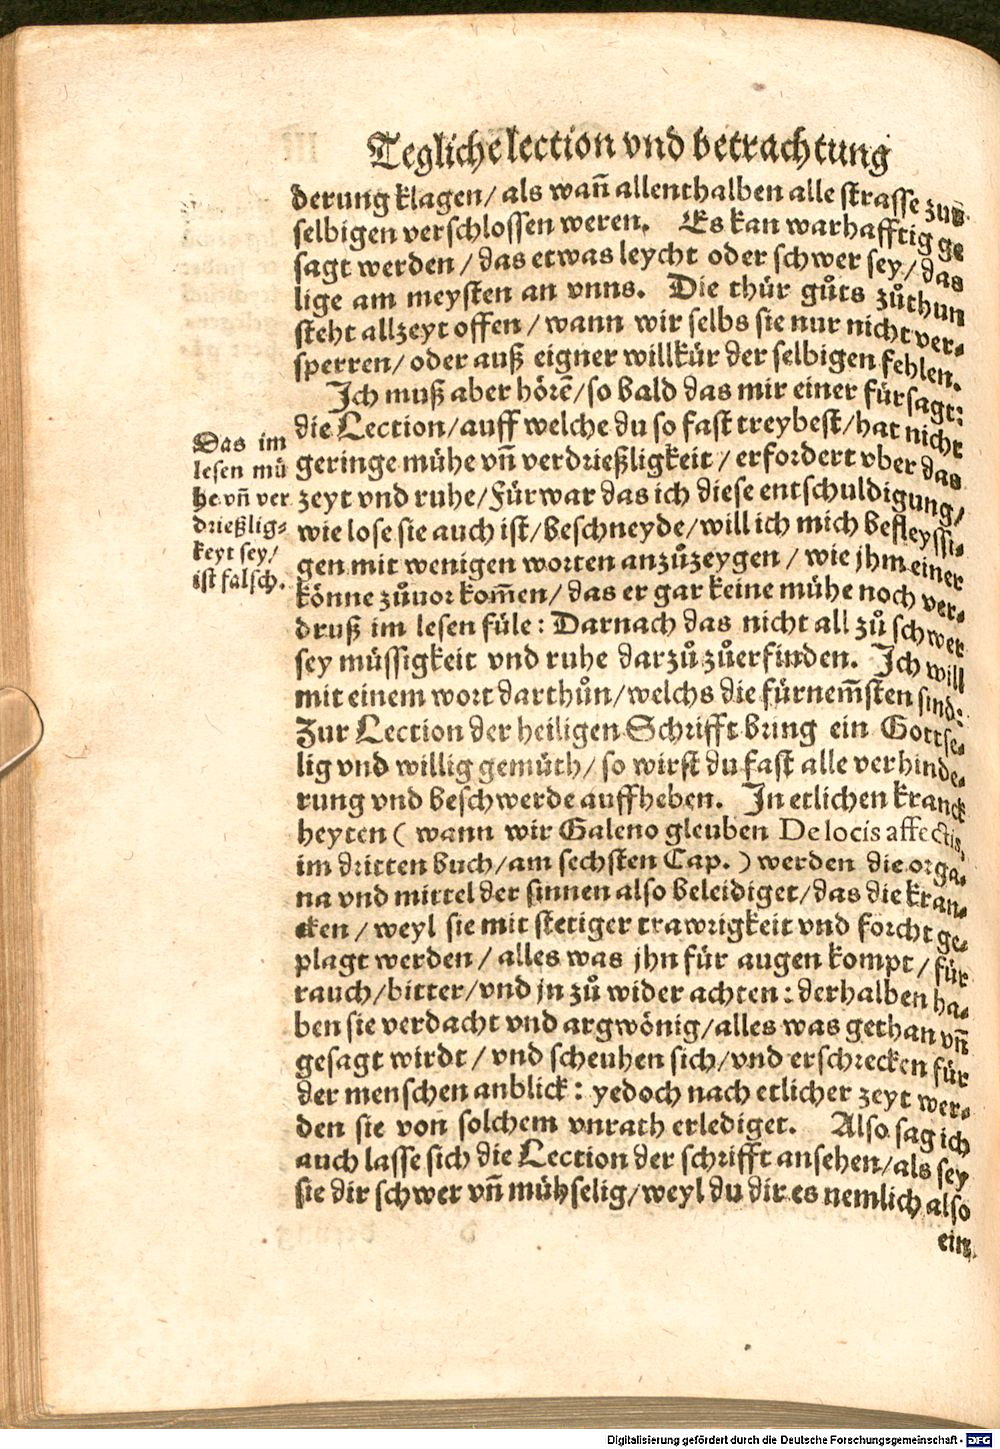 Tegliche lection vnd betrachtung
derung klagen/ als wan̄ allenthalben alle strasse zur
selbigen verschlossen weren. Es kan warhafftig ge
sagt werden/ das etwas leycht oder schwer sey/ das
lige am meysten an vnns. Die thür gůts zůthun
steht allzeyt offen/ wann wir selbs sie nur nicht ver-
sperren/ oder auß eigner willkür der selbigen fehlen.
Ich muß aber hörē/ so bald das mir einer fürsagt:
die Lection/ auff welche du so fast treybest/ hat nicht
geringe mühe vn̄ verdrießligkeit/ erfordert vber das
zeyt vnd ruhe/ Fürwar das ich diese entschuldigung/
wie lose sie auch ist/ beschneyde/ will ich mich befleyssi-
gen mit wenigen worten anzůzeygen/ wie jhm einer
könne zůuor kom̄en/ das er gar keine mühe noch ver-
druß im lesen füle: Darnach das nicht all zů schwer
sey müssigkeit vnd ruhe darzů zůerfinden. Ich will
mit einem wort darthůn/ welchs die fürnem̄sten sind:
Zur Lection der heiligen Schrifft bring ein Gottse-
lig vnd willig gemüth/ so wirst du fast alle verhinde-
rung vnd beschwerde auffheben. In etlichen kranck
heyten ( wann wir Galeno gleuben De locis affectis,
im dritten buch/ am sechsten Cap. ) werden die orga-
na vnd mittel der sinnen also beleidiget/ das die kran-
cken/ weyl sie mit stetiger trawrigkeit vnd forcht ge-
plagt werden/ alles was jhn für augen kompt/ für
rauch/ bitter/ vnd jn zů wider achten: derhalben ha-
ben sie verdacht vnd argwönig/ alles was gethan vn̄
gesagt wirdt/ vnd scheuhen sich/ vnd erschrecken für
der menschen anblick: yedoch nach etlicher zeyt wer-
den sie von solchem vnrath erlediget. Also sag ich
auch lasse sich die Lection der schrifft ansehen/ als sey
sie dir schwer vn̄ mühselig/ weyl du dir es nemlich also
ein
Das im
lesen mü
he vn̄ ver
drießlig-
keyt sey/
ist falsch.
Digitalisierung gefördert durch die Deutsche Forschungsgemeinschaft - DFG